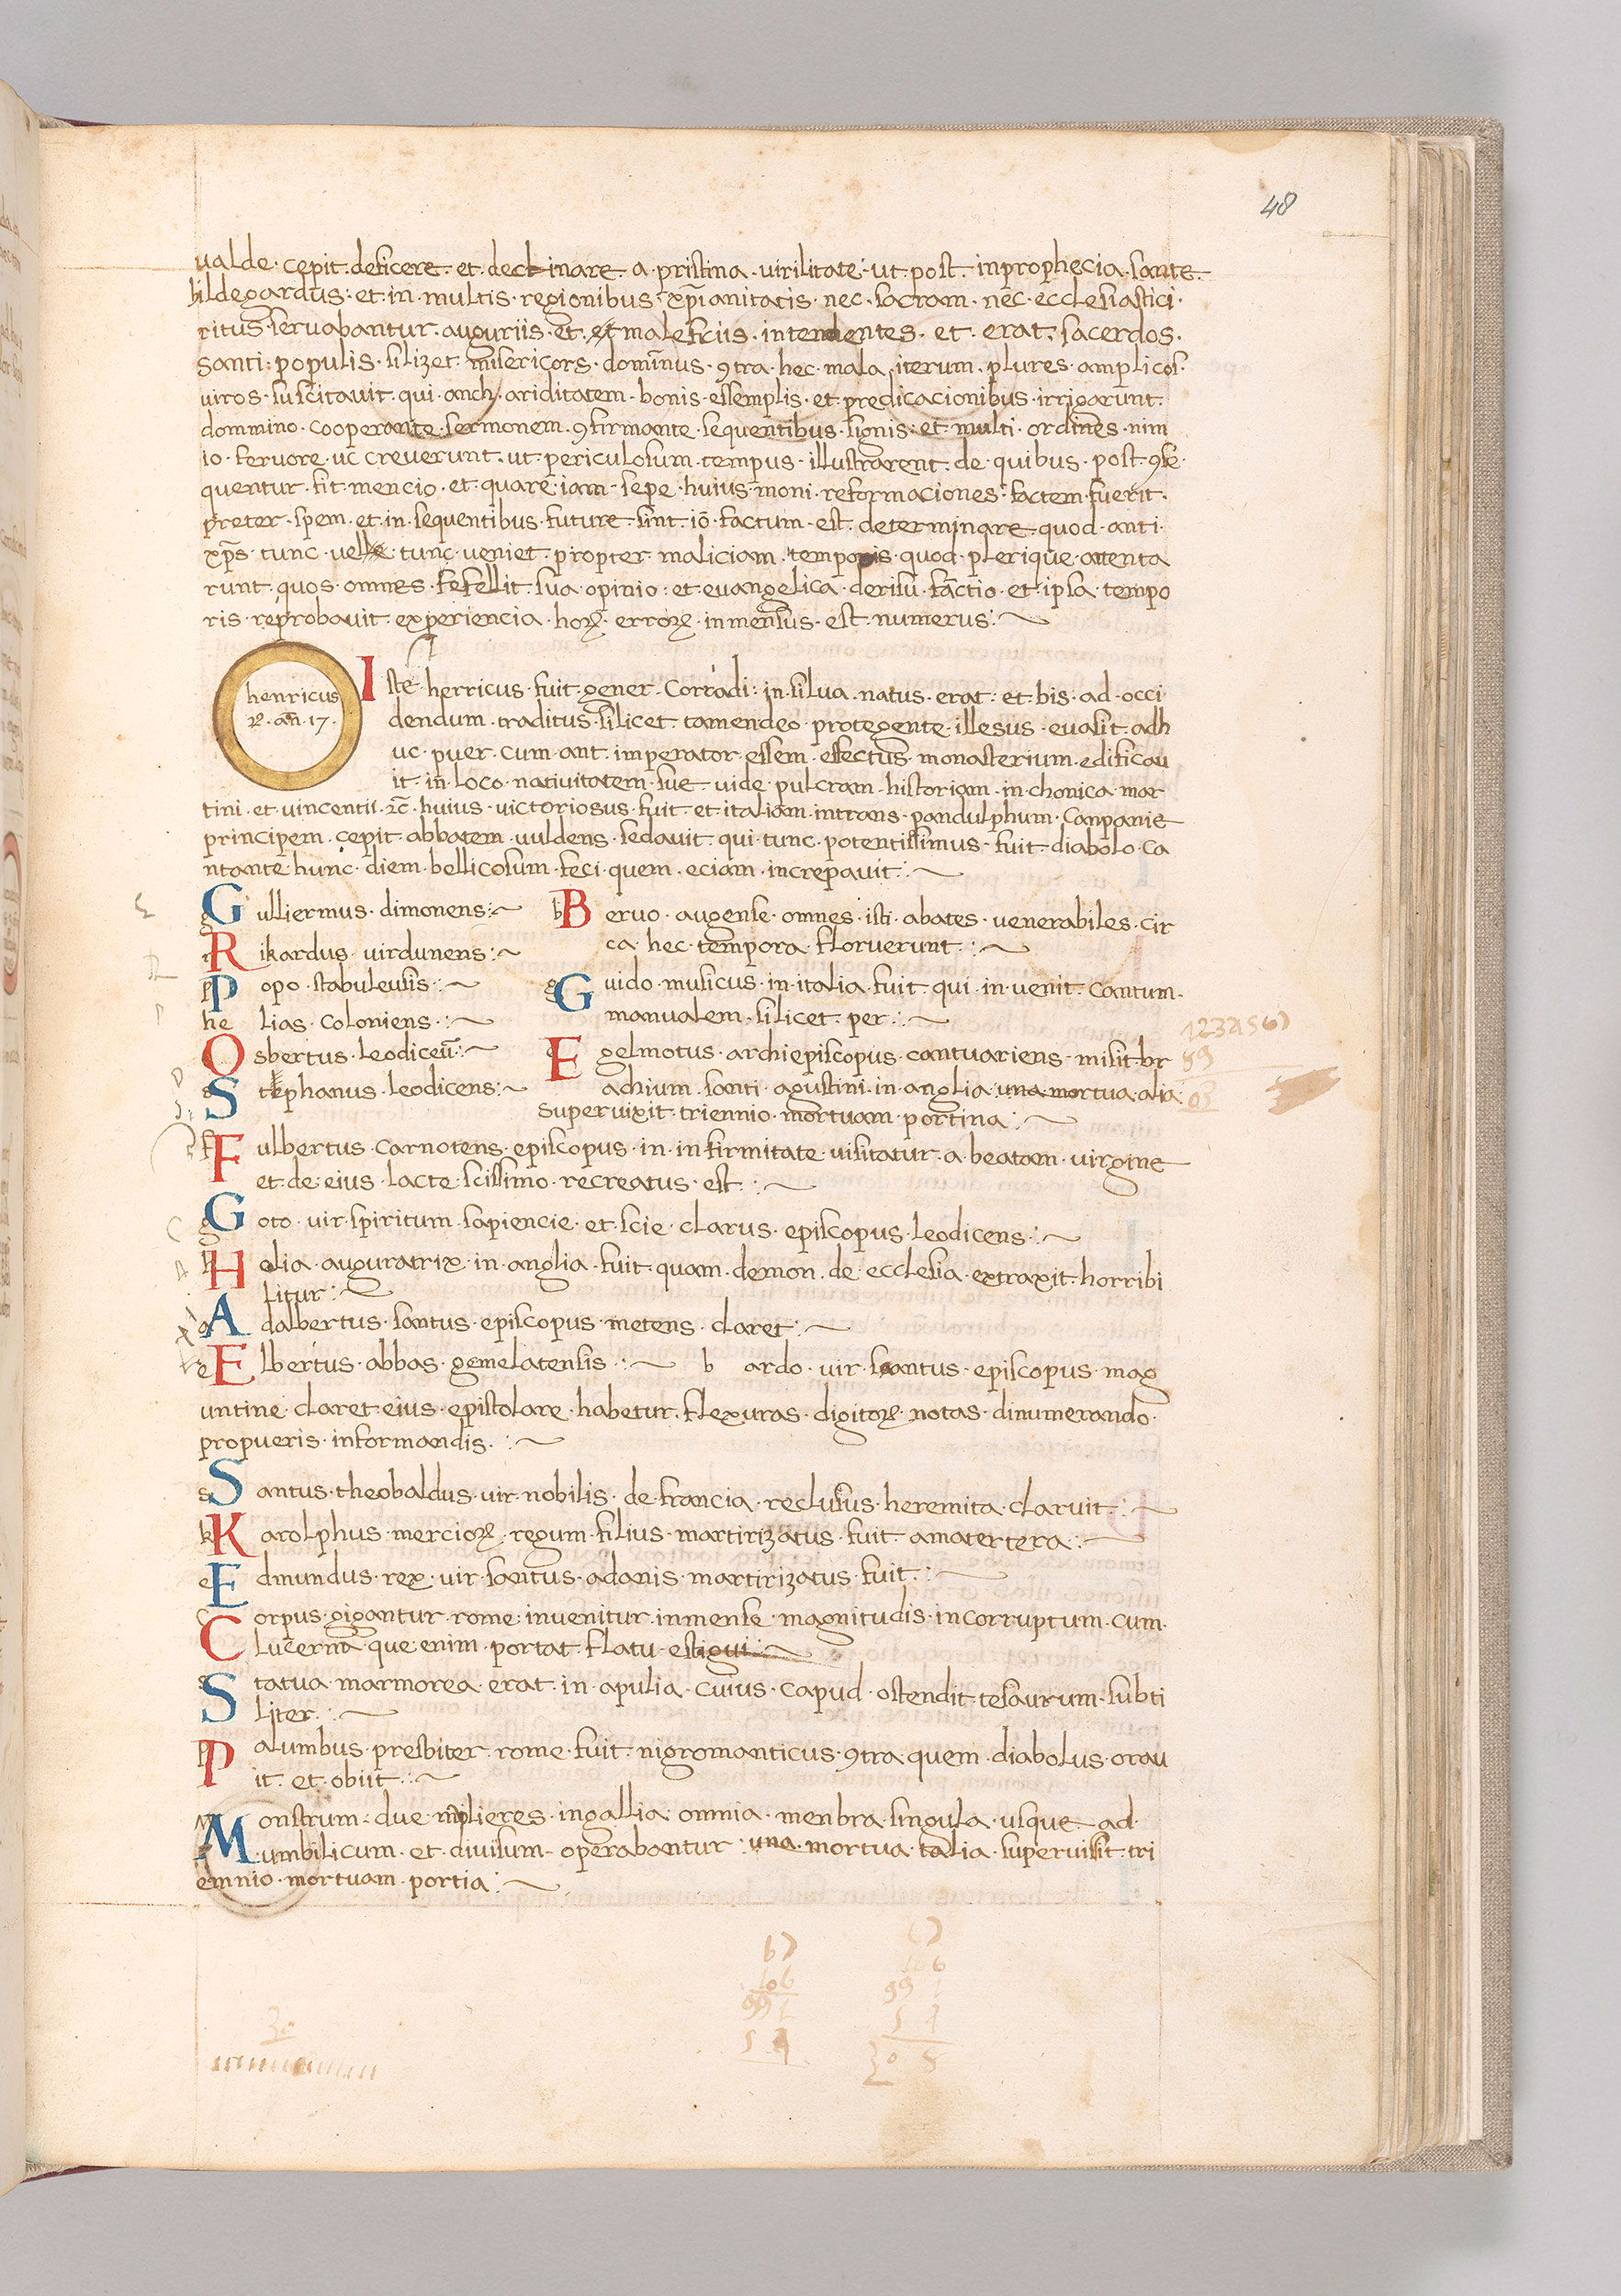 48
ualde · cepit · deficere · et · declinare · a · pristina · uirilitate · ut · post · inprophecia · sante ·
hildegardus : et · in · multis · regionibus · xp̄ianitatis · nec · sacram · nec · ecclesiastici ·
ritus · seruabantur · auguriis · et · et maleficiis · intendentes · et · erat · sacerdos ·
santi : populis · silizet · misericors · dominus · 9tra · hec · mala · iterum · plures · amplicos ·
uiros · suscitauit · qui · anch · ariditatem · bonis · essemplis · et · predicacionibus · irrigarunt ·
dommino · cooperante · sermonem · 9firmante · sequentibus · signis : et · multi · ordines · nim
io · feruore · uc creuerunt · ut · periculosum · tempus · illustrarent · de · quibus · post · 9se ·
quentur · fit · mencio · et · quare · iam · sepe · huius · moni · reformaciones · factem · fuerit ·
preter · spem · et · in · sequentibus · future · sint · iō · factum · est · determinare · quod · anti ·
xp̄s · tunc · uelle · tunc · ueniet · propter · maliciam · temporis · quod · plerique · attenta
runt · quos · omnes · fefellit · sua · opinio : et · euangelica · derisu · sanctio · et · ipsa · tempo
ris · reprobauit · experiencia · hoꝝ · erroꝝ · inmensus · est · numerus :~
henricus
2⁹ · an̄ · 17 ·
Iste · herricus · fuit · gener · Corradi : in · silua · natus · erat : et · bis · ad · occi
dendum · traditus · silicet · tamendeo · protegente · illesus · euasit · adh
uc · puer · cum · ant · imperator · essem · effectus · monasterium · edificau
it · in · loco · natiuitatem · sue · uide · pulcram · historiam · in · chonica · mar
tini · et · uincentii · 2c̄ · huius · uictoriosus · fuit · et · italiam · intrans · pandulphum · Canpanie
principem · cepit · abbatem · uuldens · sedauit · qui · tunc · potentissimus · fuit · diabolo · ca
ntante · hunc · diem · bellicosum · feci · quem · eciam · increpauit :~
Gulliermus · dimonens :~
Rikardus · uirdunens :~
Popo · stabulensis :~
helias · Coloniens :~
Osbertus · leodiceū :~
Stephanus · leodicens :~
Beruo · augense · omnes · isti · abates · uenerabiles · cir
ca · hec · tempora · floruerunt :~
Guido · musicus · in · italia · fuit · qui · in · uenit · cantum ·
manualem · silicet · per :~
Egelmotus · archiepiscopus · cantuariens · misit · br
achium · santi · agustini · in · anglia · una · mortua · alia
superuixit · triennio · mortuam · portina :~
Fulbertus · carnotens · episcopus · in · infirmitate · uisitatur · a · beatam · uirgine
et · de · eius · lacte · scissimo · recreatus · est :~
Goto · uir · spiritum · sapiencie · et · scie · clarus · episcopus · leodicens :~
Helia · auguratrix · in · anglia · fuit · quam · demon · de · ecclesia · extraxit · horribi
litur :~
Adalbertus · santus · episcopus · metens · claret :~
Elbertus · abbas · gemelatensis :~ bardo · uir · santus · episcopus · mag
untine · claret · eius · epistolare · habetur · flexuras · digitoꝝ · notas · dinumerando ·
propueris · informandis :~
Santus · theobaldus · uir · nobilis · de · francia · reclusus · heremita · claruit :~
Karolphus · mercioꝝ · regum · filius · martirizatus · fuit · amatertera :~
Edmundus · rex · uir · santus · adanis · martirizatus · fuit :~
Corpus · gigantur · rome : inuenitur · inmense · magnitudis · incorruptum · cum ·
lucerna · que · enim · portat · flatu · estigui :~
Statua · marmorea · erat · in · apulia · cuius · capud · ostendit · tesaurum · subti
liter :~
Palumbus · presbiter · rome · fuit · nigromanticus · 9tra · quem · diabolus · orau
it · et · obiit :~
Monstrum : due · mulieres · ingallia · omnia · menbra · singula · usque · ad ·
umbilicum · et · diuisum · operabantur · una · mortua · talia · superuisit · tri
emnio · mortuam · portia :~